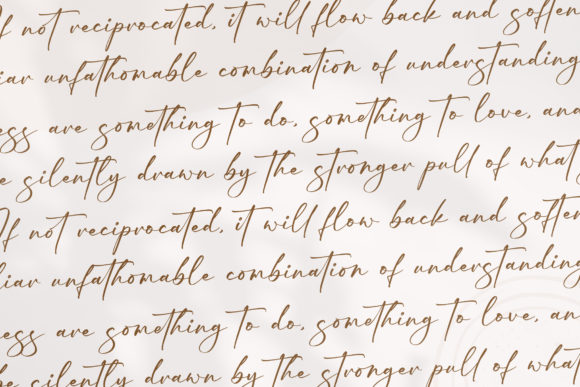 If not reciprocated, it will flow back and soften
liar unfathomable combination of understanding
ess are something to do, something to love, and
e silently drawn by the stronger pull of what
If not reciprocated, it will flow back and soften
liar unfathomable combination of understanding
ess are something to do, something to love, an
be silently drawn by the stronger pull of what